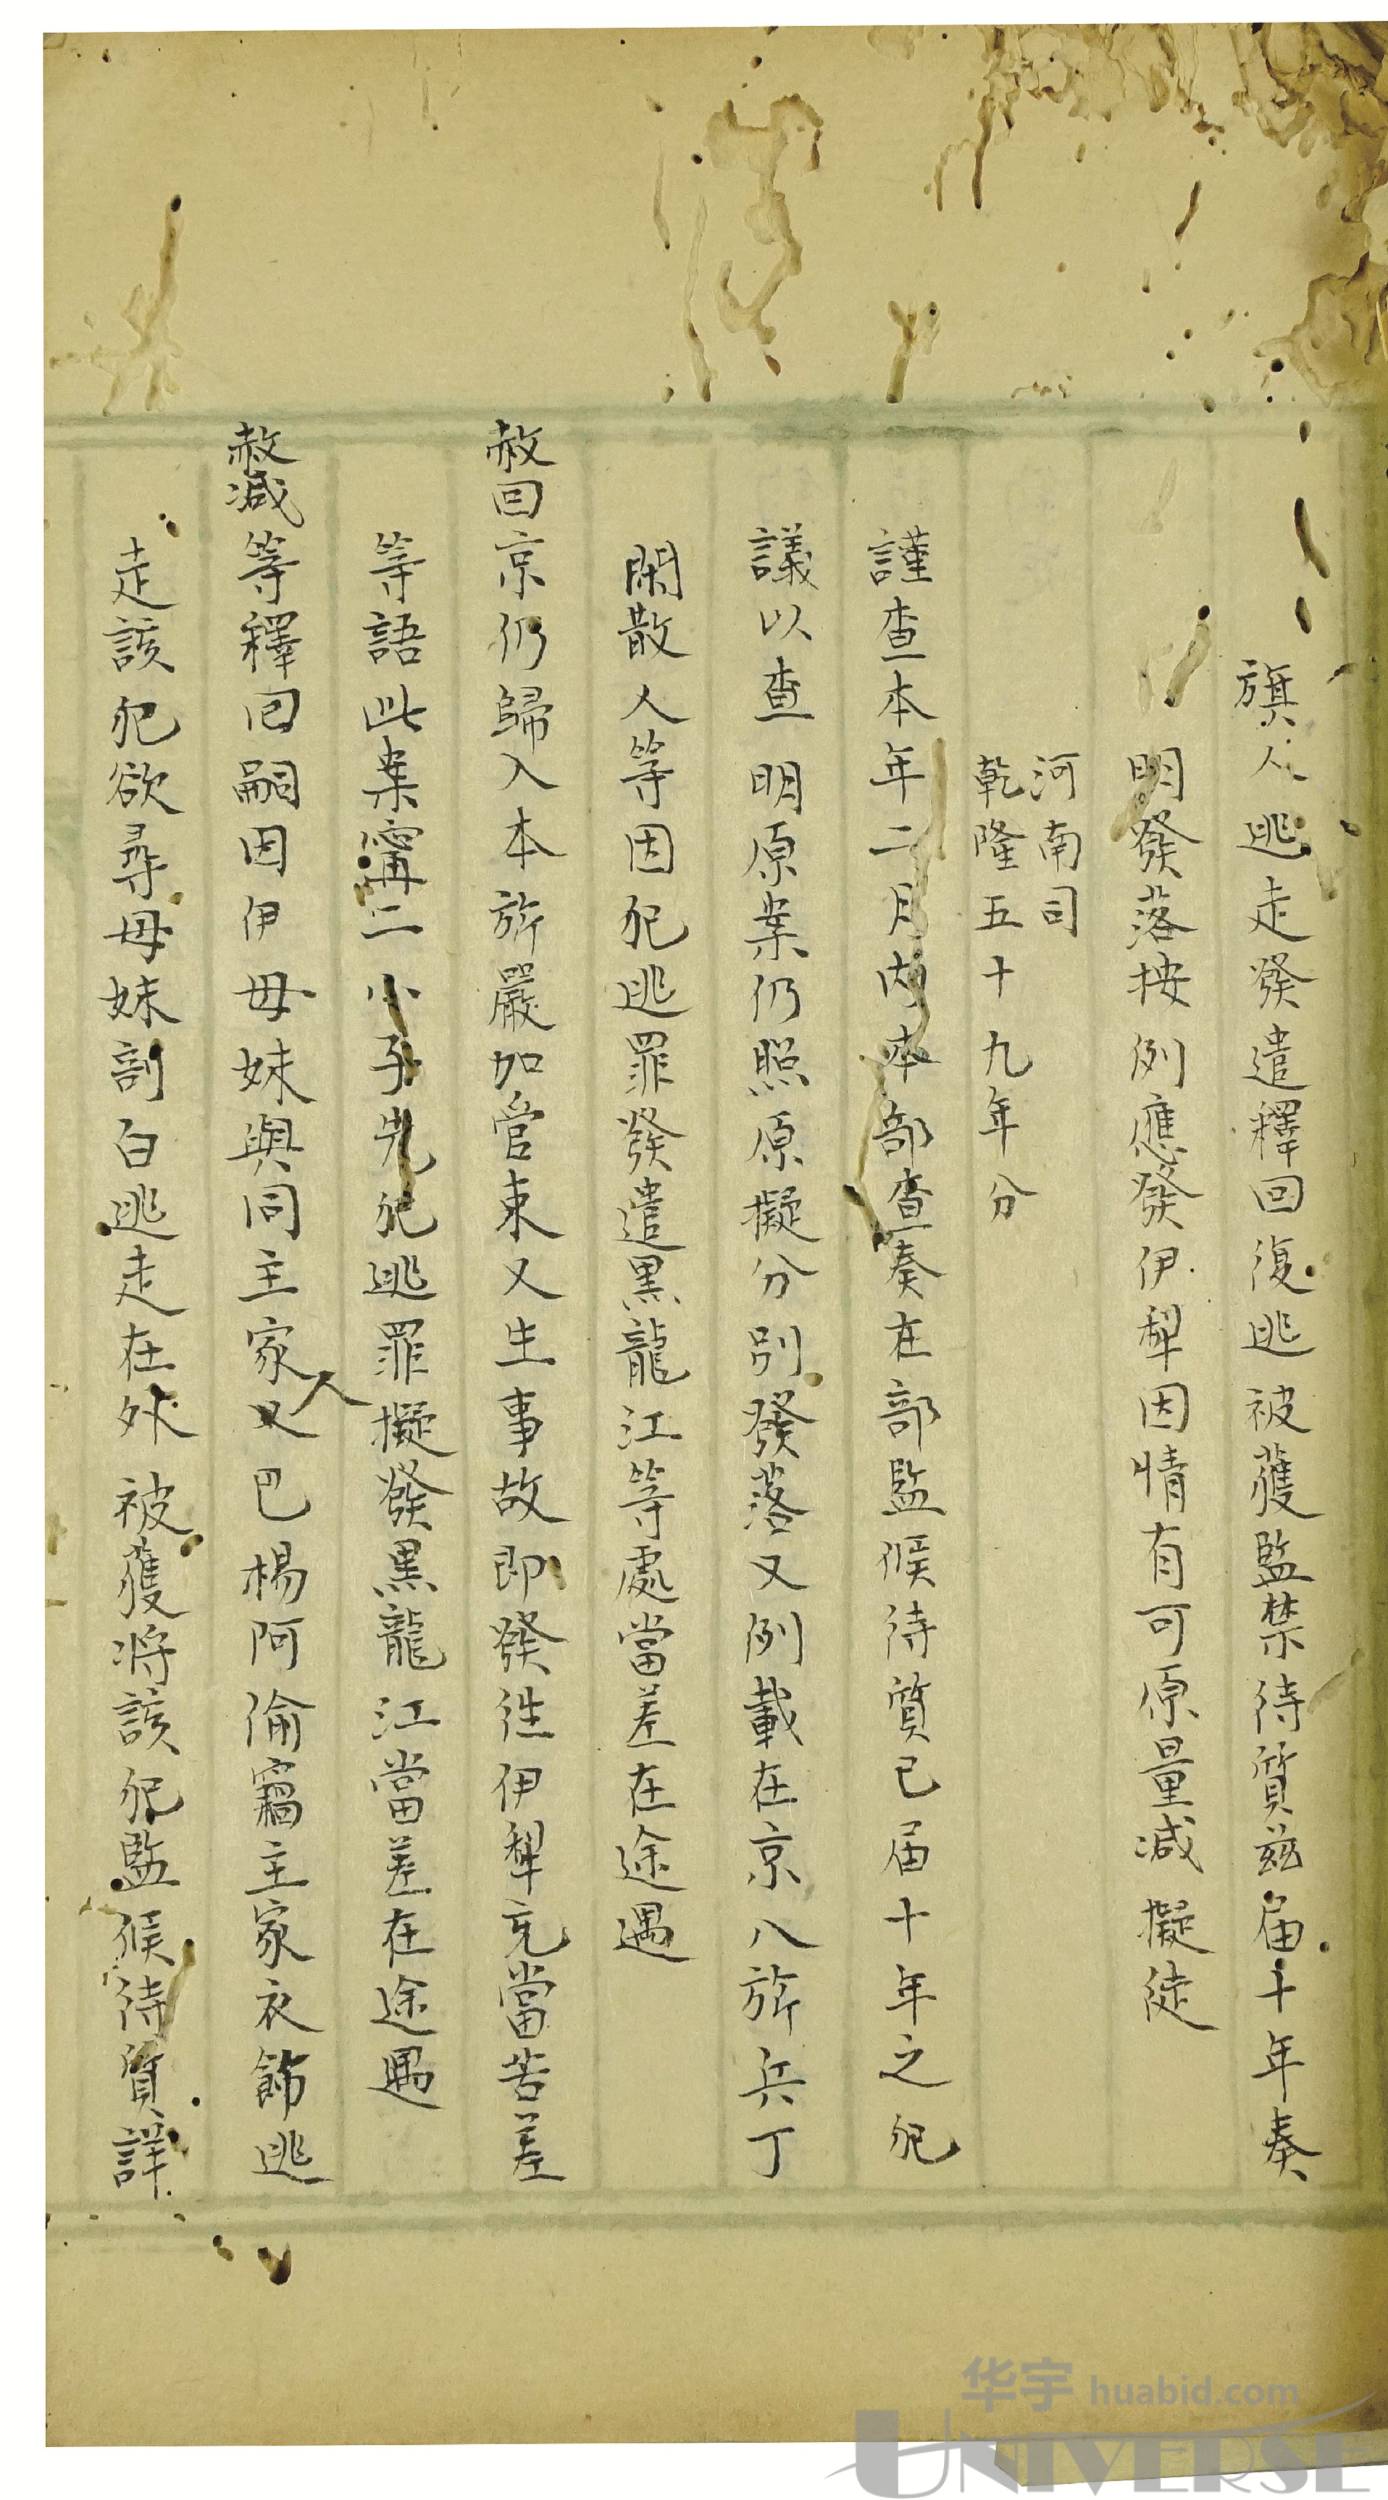 旗人逃走發遣釋回復逃被獲監禁待質茲届十年奏
明發落按例應發伊犁因情有可原量減擬徒
河南司
乾隆五十九年分
謹查本年二月内本部查奏在部監候待質已届十年之犯
議以查明原案仍照原擬分別發落又例載在京八旂兵丁
閑散人等因犯逃罪發遣黑龍江等處當差在途遇
赦回京仍歸入本旂嚴加管束又生事故即發徃伊犁充當苦差
等語此案甯二小子先犯逃罪擬發黑龍江當差在途遇
赦減等釋回嗣因伊母妹與同主家人又巴楊阿倫竊主家衣飾逃
走該犯欲尋母妹剖白逃走在外被獲將該犯監候待質詳
华宇 huabid.com
UNIVERSE